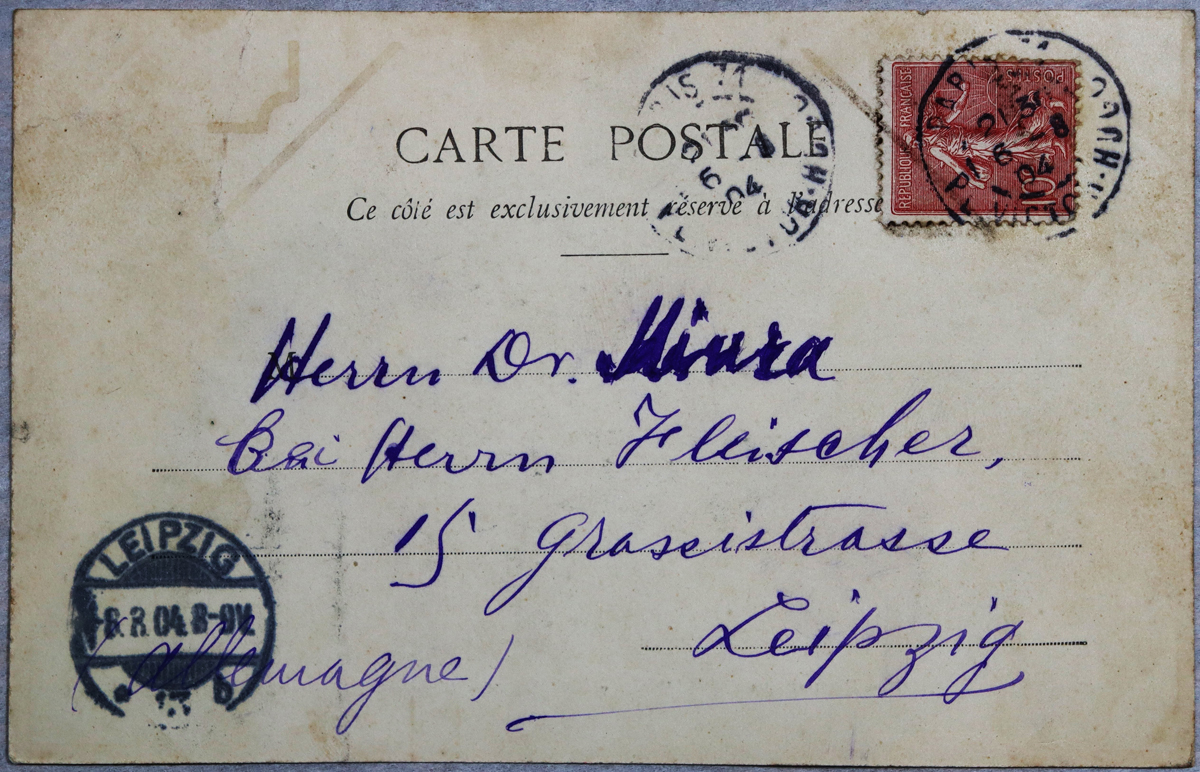 CARTE POSTALE
Ce côté est exclusivement réservé à l'adresse
RÉPUBLIQUE FRANÇAISE
POSTES
10
PARIS
21 30
6 - 8
04
PARIS
6
04
M
Herrn Dr. Miura
Bei Herrn Fleischer,
15 Grassistrasse
Leipzig
(Allemagne)
LEIPZIG
8.8.04.8-9V.
b